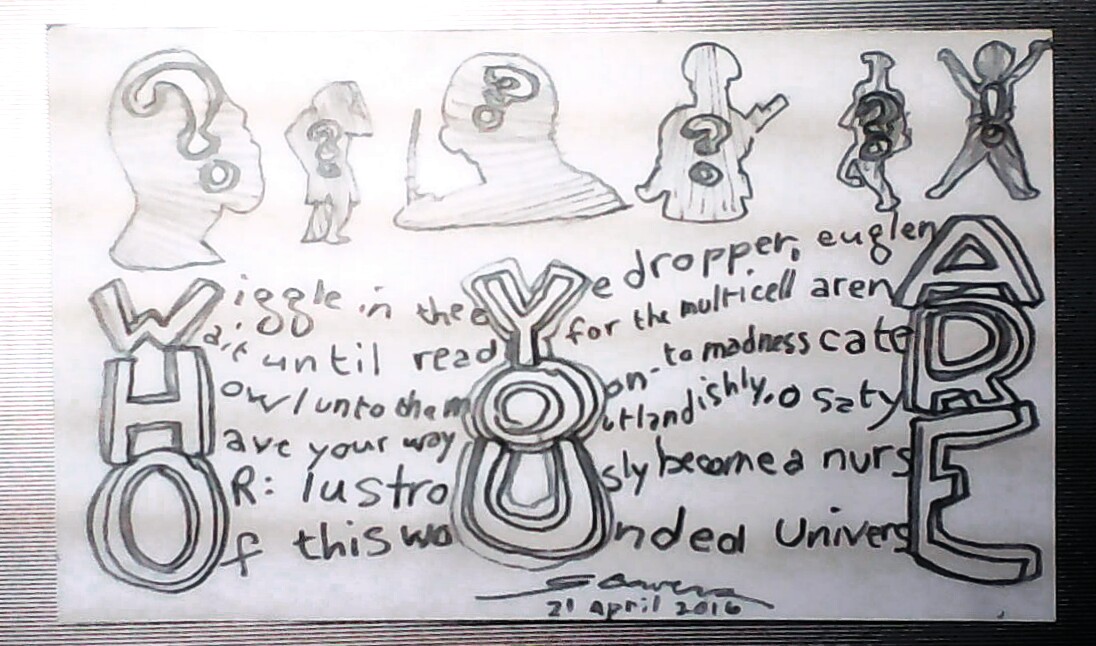 ? ? ? ? ? !
Wiggle in the eYe dropper, euglenA
Wait until readY for the multicell arenA
Howl unto the mOon- to madness cateR
Have your way Outlandishly. O satyR
OR: lustroUsly become a nursE
Of this woUnded UniversE
21 April 2016